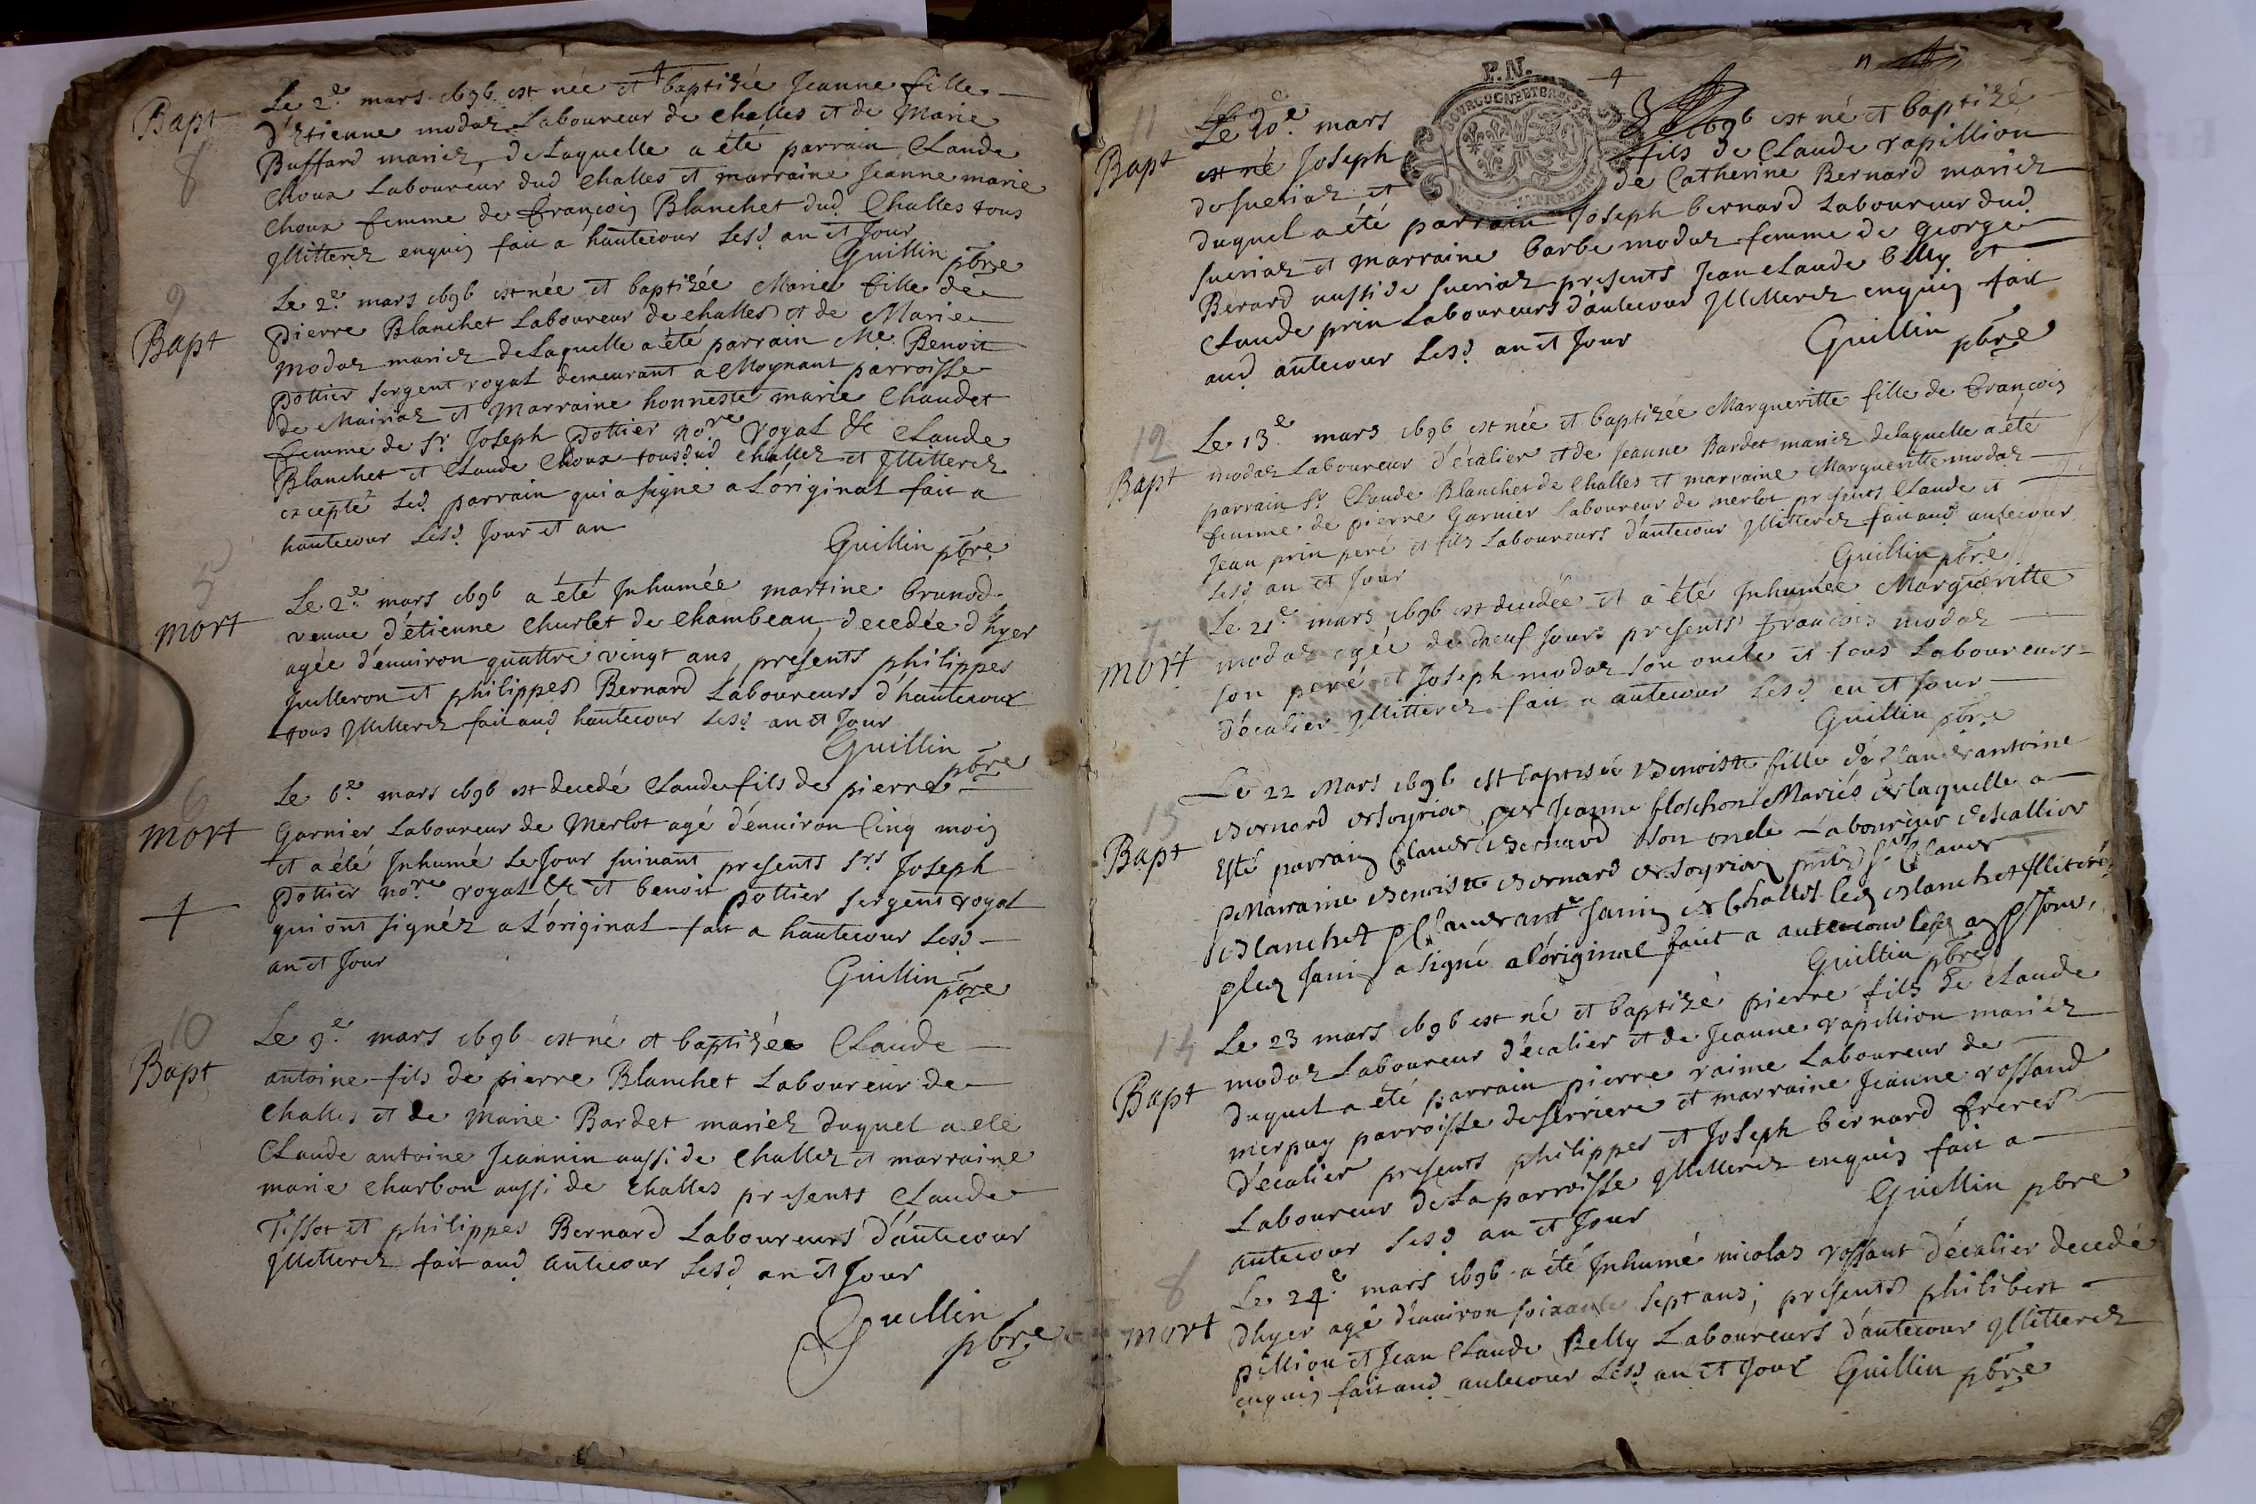 Bapt
8
Le 2e. mars 1696 est née et baptizée Jeanne fille
d'Etienne modaz Laboureur de challes et de Marie
Buffard mariez, de Laquelle a été parrain Claude
Choux Laboureur dud Challes et marraine Jeanne marie
Choux femme de françois Blanchet dud Challes tous
Jllitterez enquis fait a hautecour Lesd an et Jour
Guillin pbre
9
Bapt
Le 2e. mars 1696 est née et baptizée Marie fille de
pierre Blanchet Laboureur de challes et de Marie
modaz mariez de Laquelle a été parrain Me. Benoit
pottier sergent royal demeurant a Moynant parroisse
de Mairiaz et Marraine honneste marie Chaudet
femme de Sr Joseph pottier nore royal &c Claude
Blanchet et Claude Choux tous dud challez et Jllitterez
excepté led parrain qui a signé a L'original fait a
hautecour Lesd Jour et an
Guillin pbre
5
mort
Le 2e. mars 1696 a été Jnhumée martine brunod
veuue d'étienne Churlet de Chambeau, decedée d'hyer
agée d'enuiron quattre vingt ans, présents philippes
Juilleron et philippes Bernard Laboureurs d'hautecour
tous Jllitterez fait aud hautecour Lesd an et Jour
Guillin pbre
6
mort
Le 6e. mars 1696 est decedé Claude fils de pierre
Garnier Laboureur de Merlot agé d'enuiron Cinq mois
et a été Jnhumé Le Jour suiuant presents Srs Joseph
pottier nore royal &c et benoit pottier sergent royal
qui ont signéz a L'original fait a hautecour Lesd
an et Jour
Guillin pbre
10
Bapt
Le 9e. mars 1696 est né et baptizée Claude
antoine fils de pierre Blanchet Laboureur de
challes et de Marie Bardet mariez duquel a ete
Claude antoine Jeannin aussi de challez et marraine
marie charbon aussi de challes presents Claude
Tissot et philippes Bernard Laboureurs d'autecour
Jllitterez fait aud autecour Lesd an et Jour
Guillin
pbre
P.N.
11
Bapt
Le 10e. mars 1696 est né et baptizé
est né Joseph fils de Claude rapillion
de sueriaz et de Catherine Bernard mariez
duquel a été parrain Joseph bernard Laboureur dud
sueriaz et marraine barbe modaz femme de george
Berard aussi de sueriaz presents Jean claude belly et
Claude prin Laboureurs d'autecour Jllitterez enquis fait
aud autecour Lesd an et Jour
Guillin pbre
12
Bapt
Le 13e. mars 1696 est née et baptizée Margueritte fille de françois
modaz Laboureur d'écalier et de Jeanne Bardet mariez de laquelle a été
parrain Sr. Claude Blanchet de challes et marraine Margueritte modaz
femme de pierre Garnier Laboureur de merlot presents Claude et
Jean prin peré et filz Laboureurs d'autecour Jllitterez fait aud autecour
Lesd an et Jour
Guillin pbre
7
mort
Le 21e. mars 1696 est decedée et a été Jnhumée Margueritte
modaz agée de neuf Jours presents françois modaz
son peré et Joseph modaz son oncle et tous Laboureurs
d'écalier Jllitterez fait a autecour Lesd an et Jour
Guillin pbre
13
Bapt
Le 22 Mars 1696 est baptisée Benoiste fille de Claude antoine
Bernard de soyria et Jeanne floschon Mariés de laquelle a
Esté parrain Claude Bernard son oncle Laboureur descallier
et Marraine Benoiste Bernard de soyria Claude
Blanchet et Claude ante Janin de Challes led Blanchet Jlliteré
et led Janin a signé a l'original fait a autecour
Guillin pbre
14
Bapt
Le 23 mars 1696 est né et baptizé pierre fils de Claude
modaz Laboureur d'écalier et de Jeanne rapillion mariéz
duquel a été parrain pierre raime Laboureur de
merpuy parroisse de serriere et marraine Jeanne rossand
d'écalier presents philippes et Joseph bernard freres
Laboureur de La parroisse Jllitterez enquis fait a
autecour Lesd an et Jour
Guillin pbre
8
mort
Le 24e. mars 1696 a été Jnhumé nicolas rossant d'écalier decedé
d'hyer agé d'enuiron soixante sept ans, présents philibert
pillion et Jean Claude Belly Laboureurs d'autecour Jllitterez
enquis fait aud autecour Lesd an et Jour Guillin pbre